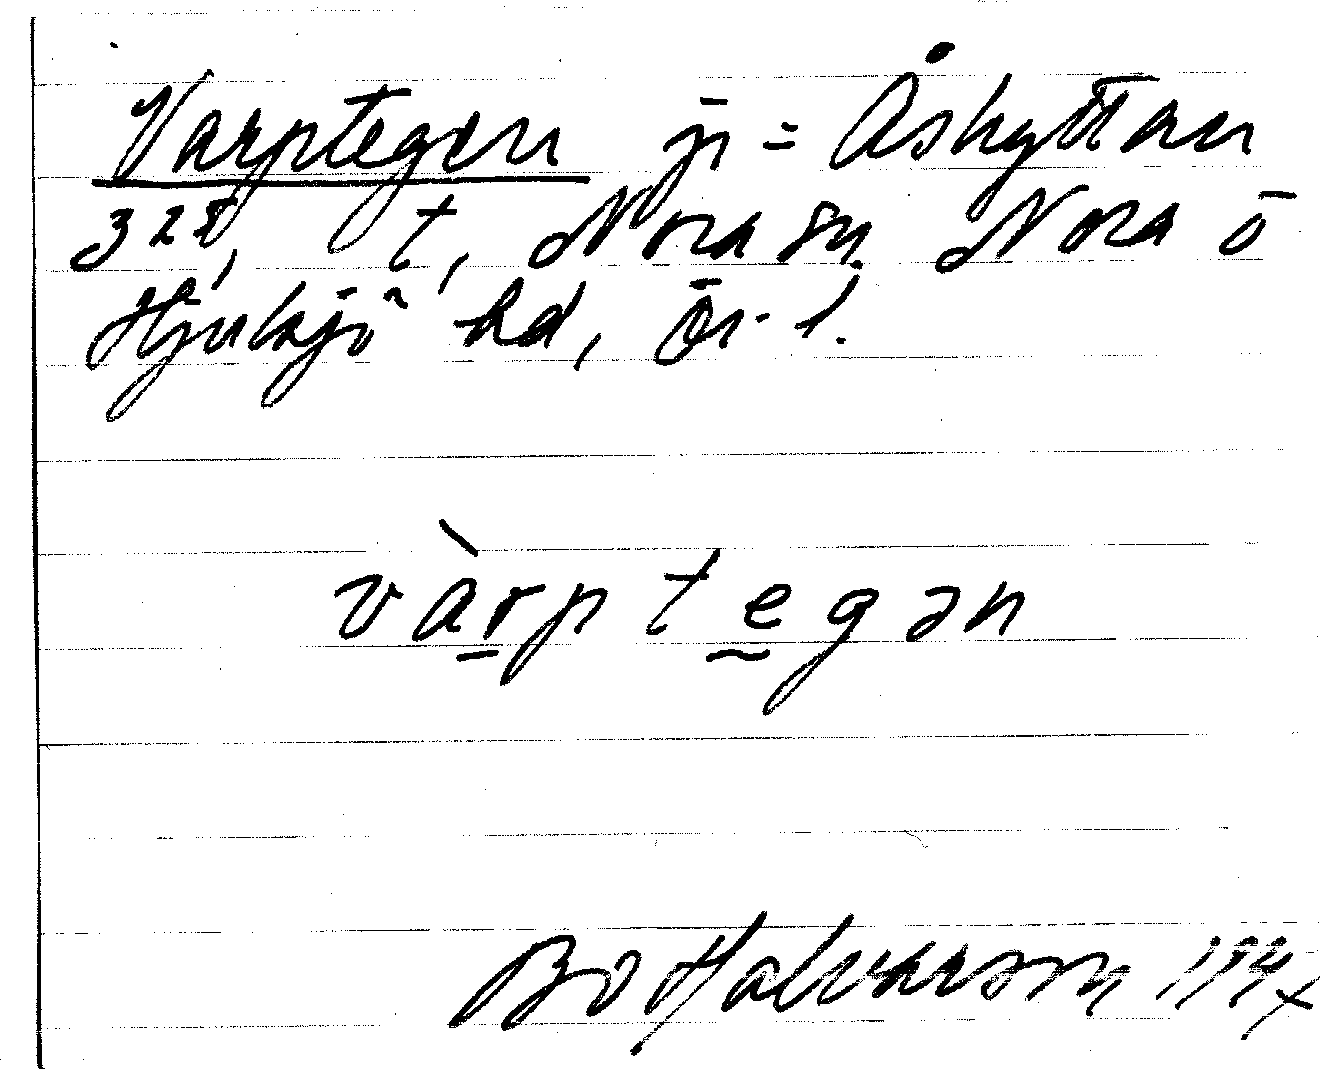 Varptegen js = Åshyttan
3 28, t, Nora sn. Nora o
Hjulsjö bd, Ör. l.
vàrptegən
Bo Halvarson 194x